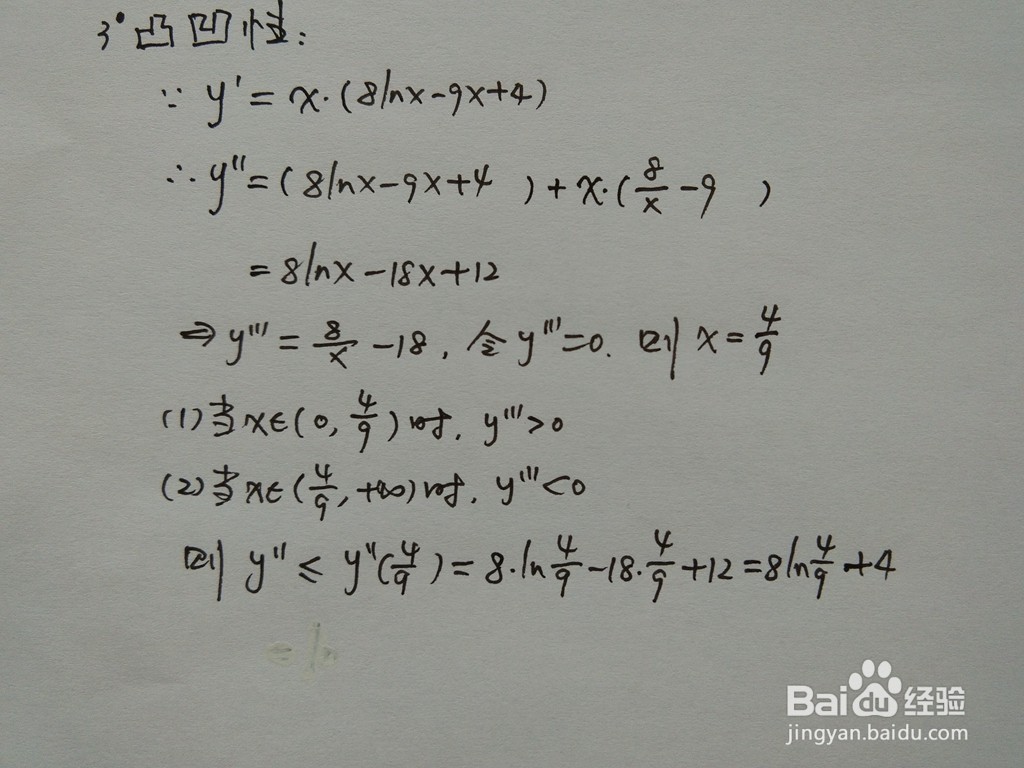 3° 凸凹性:
∵ y' = x·(8lnx-9x+4)
∴ y'' = (8lnx-9x+4) + x·(8/x - 9)
= 8lnx - 18x + 12
⇒ y''' = 8/x - 18, 令 y'''=0. 则 x = 4/9
(1) 当x∈(0, 4/9)时, y'''>0
(2) 当x∈(4/9, +∞)时, y'''<0
则 y'' ≤ y''(4/9) = 8·ln4/9 - 18·4/9 + 12 = 8ln4/9 + 4
= ln
Baidu经验
jingyan.baidu.com